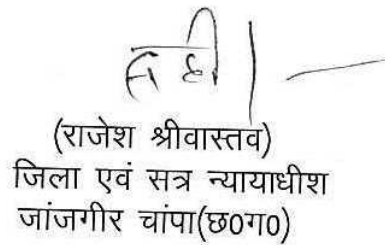 सही/-
(राजेश श्रीवास्तव)
जिला एवं सत्र न्यायाधीश
जांजगीर चांपा(छ0ग0)